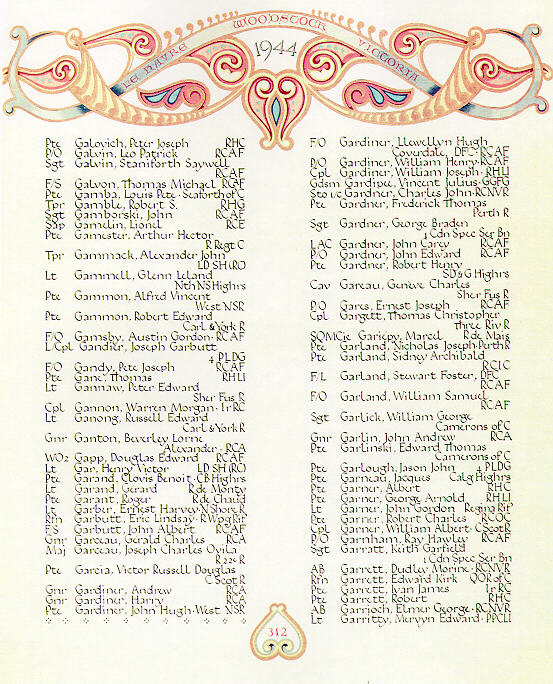 LE HAVRE WOODSTOCK VICTORIA
1944
Ptc Galovich, Peter Joseph RHC
P/O Galvin, Leo Patrick RCAF
Sgt Galvin, Staniforth Saywell
RCAF
F/S Galvon, Thomas Michael RCAF
Ptc Gamba, Louis Pete · Seaforth of C
Tpr Gamble, Robert S. RHG
Sgt Gamborski, John RCAF
Sap Gamelin, Lionel RCE
Ptc Gamester, Arthur Hector
R Regt C
Tpr Gammack, Alexander John
LD SH (RC)
Lt Gammell, Glenn Leland
Nth NS Highrs
Ptc Gammon, Alfred Vincent
West NSR
Ptc Gammon, Robert Edward
Carl & York R
F/O Gamsby, Austin Gordon · RCAF
L/Cpl Gandier, Joseph Garbutt
4 PLDG
F/O Gandy, Pete Joseph RCAF
Ptc Gane, Thomas RHLI
Lt Gannaw, Peter Edward
Sher Fus R
Cpl Gannon, Warren Morgan · Ir RC
Lt Ganong, Russell Edward
Carl & York R
Gnr Ganton, Beverley Lorne
Alexander · RCA
WO2 Gapp, Douglas Edward RCAF
Lt Gar, Henry Victor LD SH (RC)
Ptc Garand, Clovis Benoit · CB Highrs
Lt Garand, Gerard R de Montg
Ptc Garant, Roger R de Chaud
Lt Garber, Ernest Harvey · N Shore R
Rfn Garbutt, Eric Lindsay · R Wpg Rif
F/S Garbutt, John Albert RCAF
Gnr Gareau, Gerald Charles RCA
Maj Gareau, Joseph Charles Ovila
R 22e R
Ptc Garcia, Victor Russell Douglas
C Scot R
Gnr Gardiner, Andrew RCA
Gnr Gardiner, Harry RCA
Ptc Gardiner, John Hugh · West NSR
F/O Gardiner, Llewellyn Hugh
Coverdale, DFC · RCAF
P/O Gardiner, William Henry · RCAF
Cpl Gardiner, William Joseph · RHLI
Gdsm Gardipee, Vincent Julius · GGFG
Sto 1/c Gardner, Charles John · RCNVR
Ptc Gardner, Frederick Thomas
Perth R
Sgt Gardner, George Braden
1 Cdn Spec Ser Bn
LAC Gardner, John Carey RCAF
P/O Gardner, John Edward RCAF
Ptc Gardner, Robert Henry
SD & G Highrs
Cav Gareau, Geneve Charles
Sher Fus R
P/O Gares, Ernest Joseph RCAF
Cpl Gargett, Thomas Christopher
Three Riv R
SQMCie Gariepy, Marcel R de Mais
Ptc Garland, Nicholas Joseph · Perth R
Ptc Garland, Sidney Archibald
RCIC
F/L Garland, Stewart Foster, DFC
RCAF
F/O Garland, William Samuel
RCAF
Sgt Garlick, William George
Camerons of C
Gnr Garlin, John Andrew RCA
Ptc Garlinski, Edward Thomas
Camerons of C
Ptc Garlough, Jason John 4 PLDG
Ptc Garneau, Jacques Calg Highrs
Ptc Garner, Albert RHC
Ptc Garner, George Arnold RHLI
Lt Garner, John Gordon Regina Rif
Ptc Garner, Robert Charles RCOC
Cpl Garner, William Albert · C Scot R
P/O Garnham, Ray Hawley RCAF
Sgt Garratt, Keith Garfield
1 Cdn Spec Ser Bn
AB Garrett, Dudley Morine · RCNVR
Rfn Garrett, Edward Kirk QOR of C
Ptc Garrett, Ivan James Ir RC
Ptc Garrett, Robert RHC
AB Garrioch, Elmer George · RCNVR
Lt Garritty, Mervyn Edward · PPCLI
312